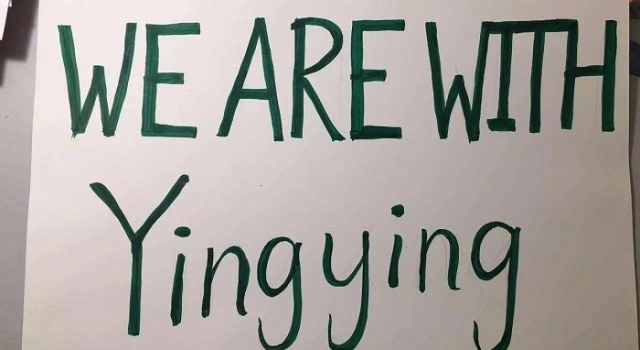 WE ARE WITH
Yingying